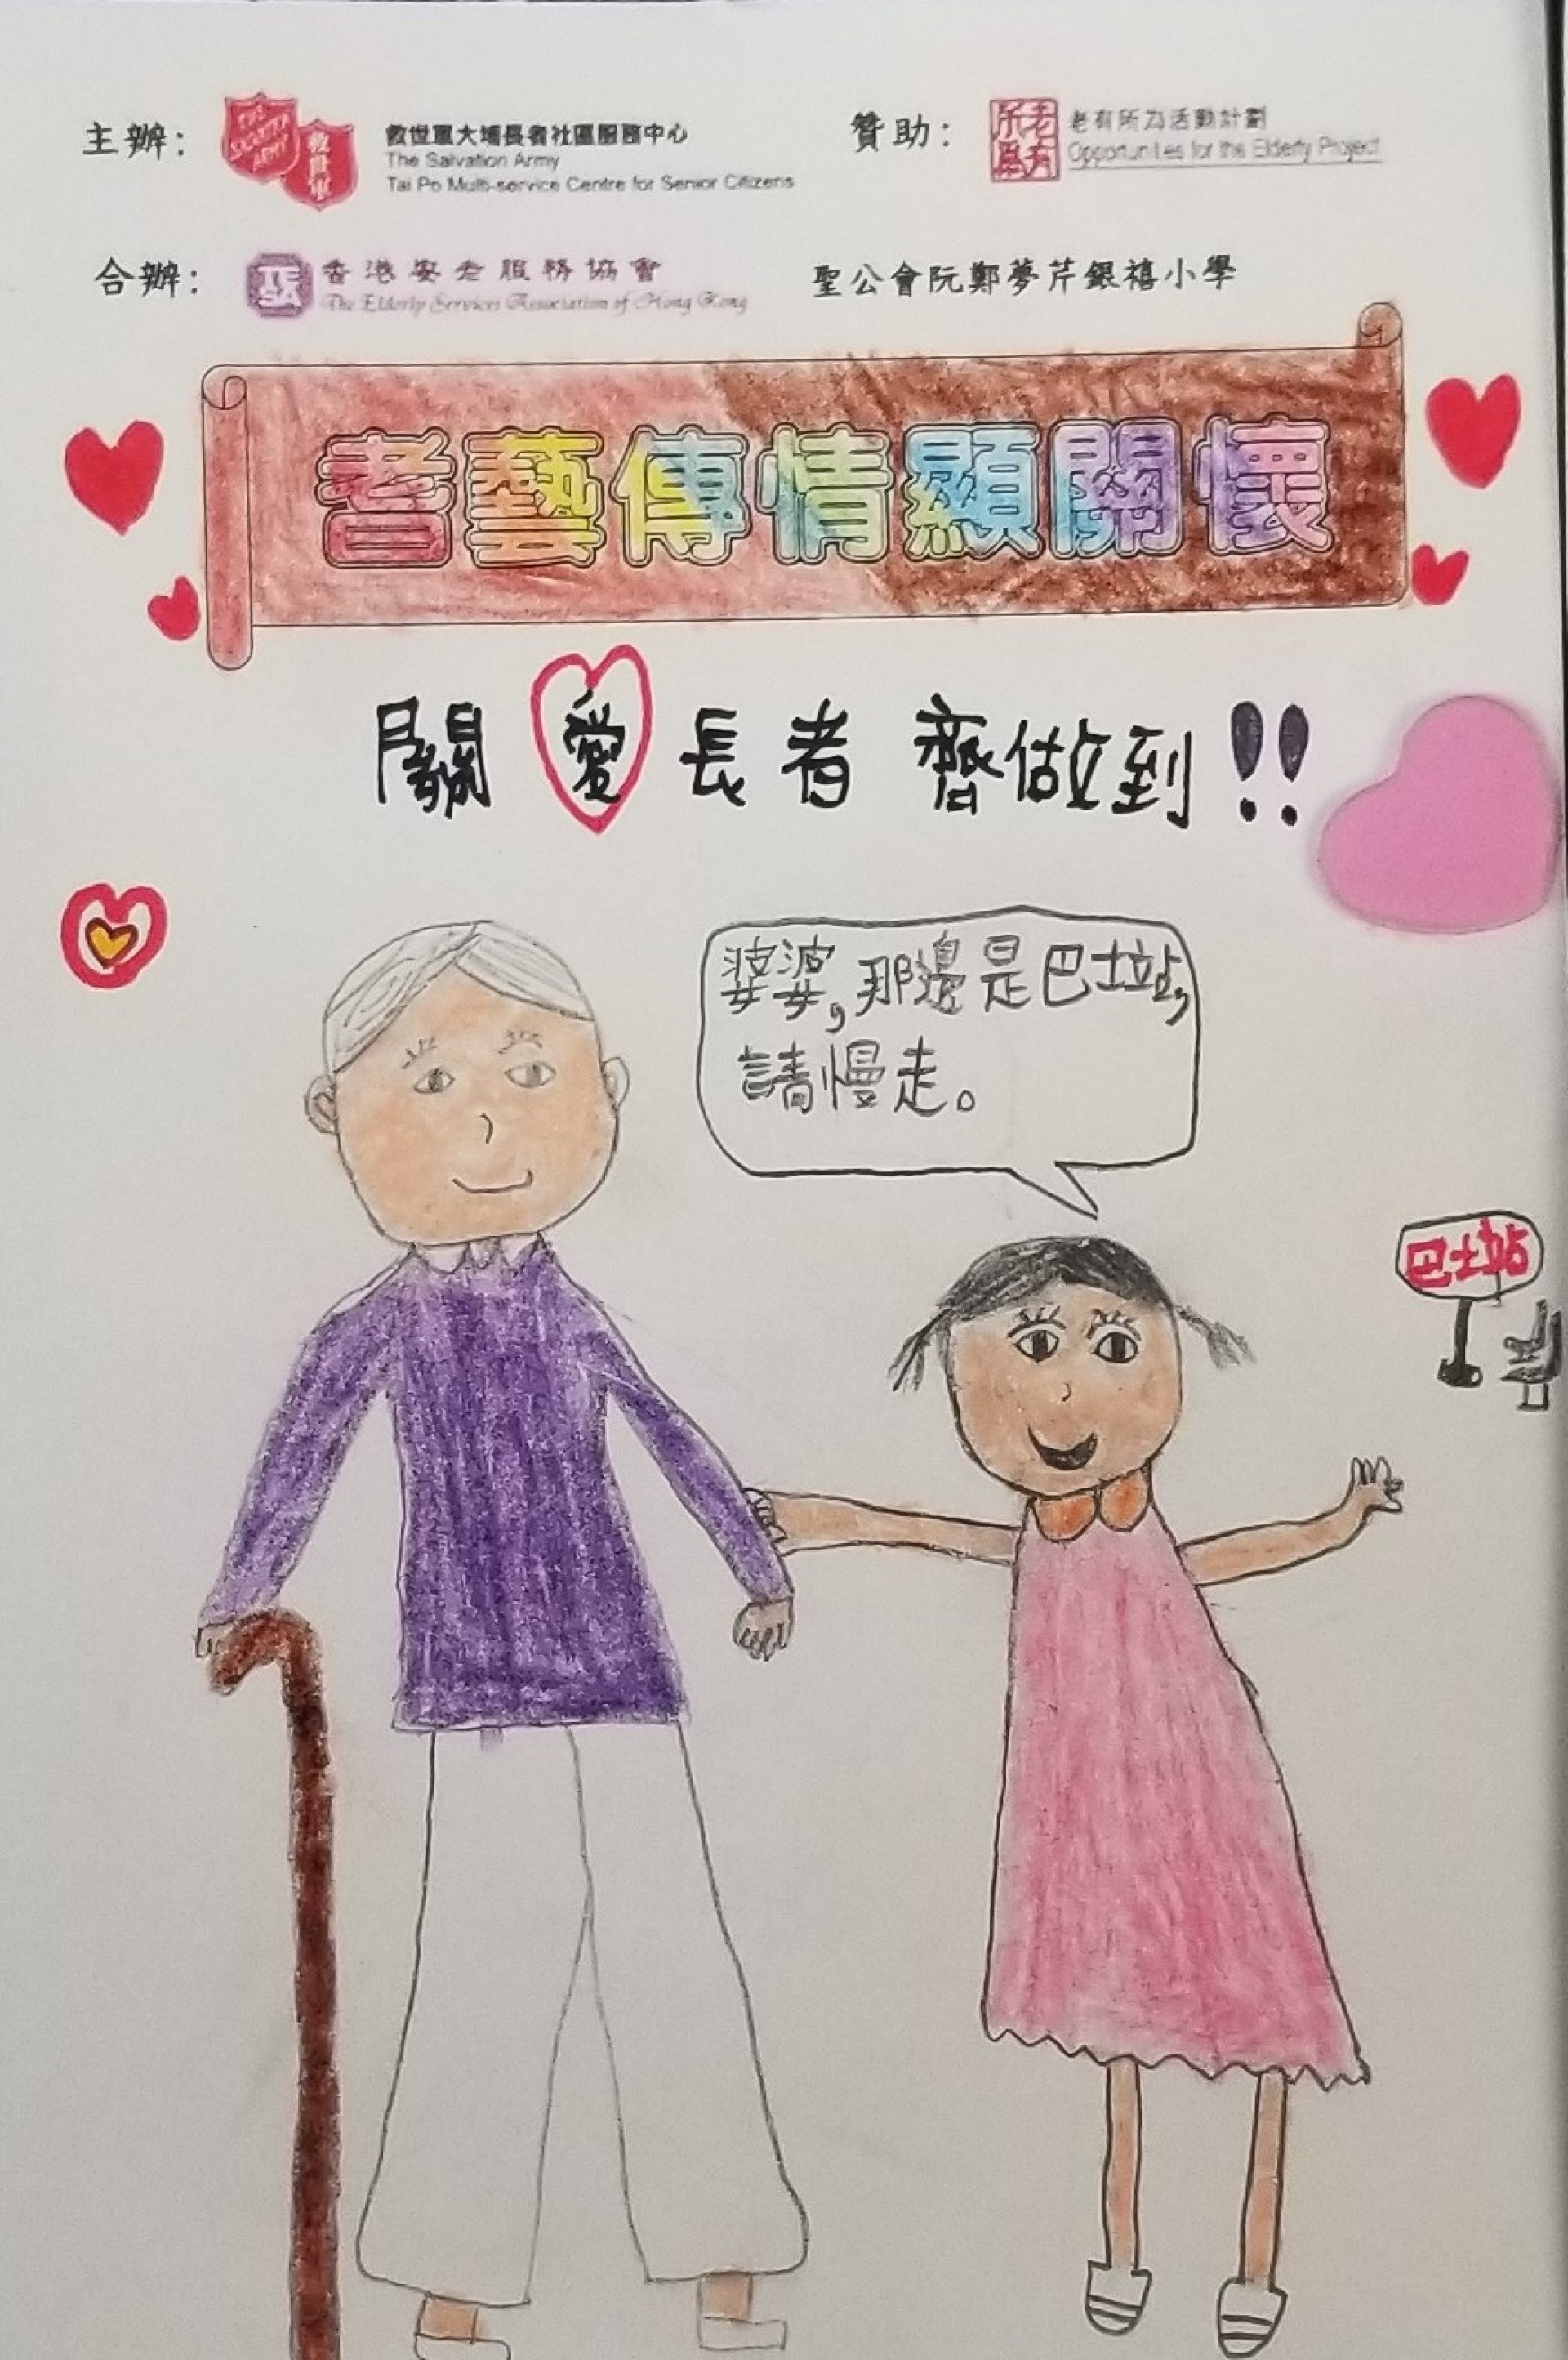 主辦：
THE SALVATION ARMY
救世軍
救世軍大埔長者社區服務中心
The Salvation Army
Tai Po Multi-service Centre for Senior Citizens
贊助：
老有所為
老有所為活動計劃
Opportunities for the Elderly Project
合辦：
TESA
香港安老服務協會
The Elderly Services Association of Hong Kong
聖公會阮鄭夢芹銀禧小學
耆藝傳情顯關懷
關愛長者 齊做到!!
婆婆,那邊是巴士站,
請慢走。
巴士站